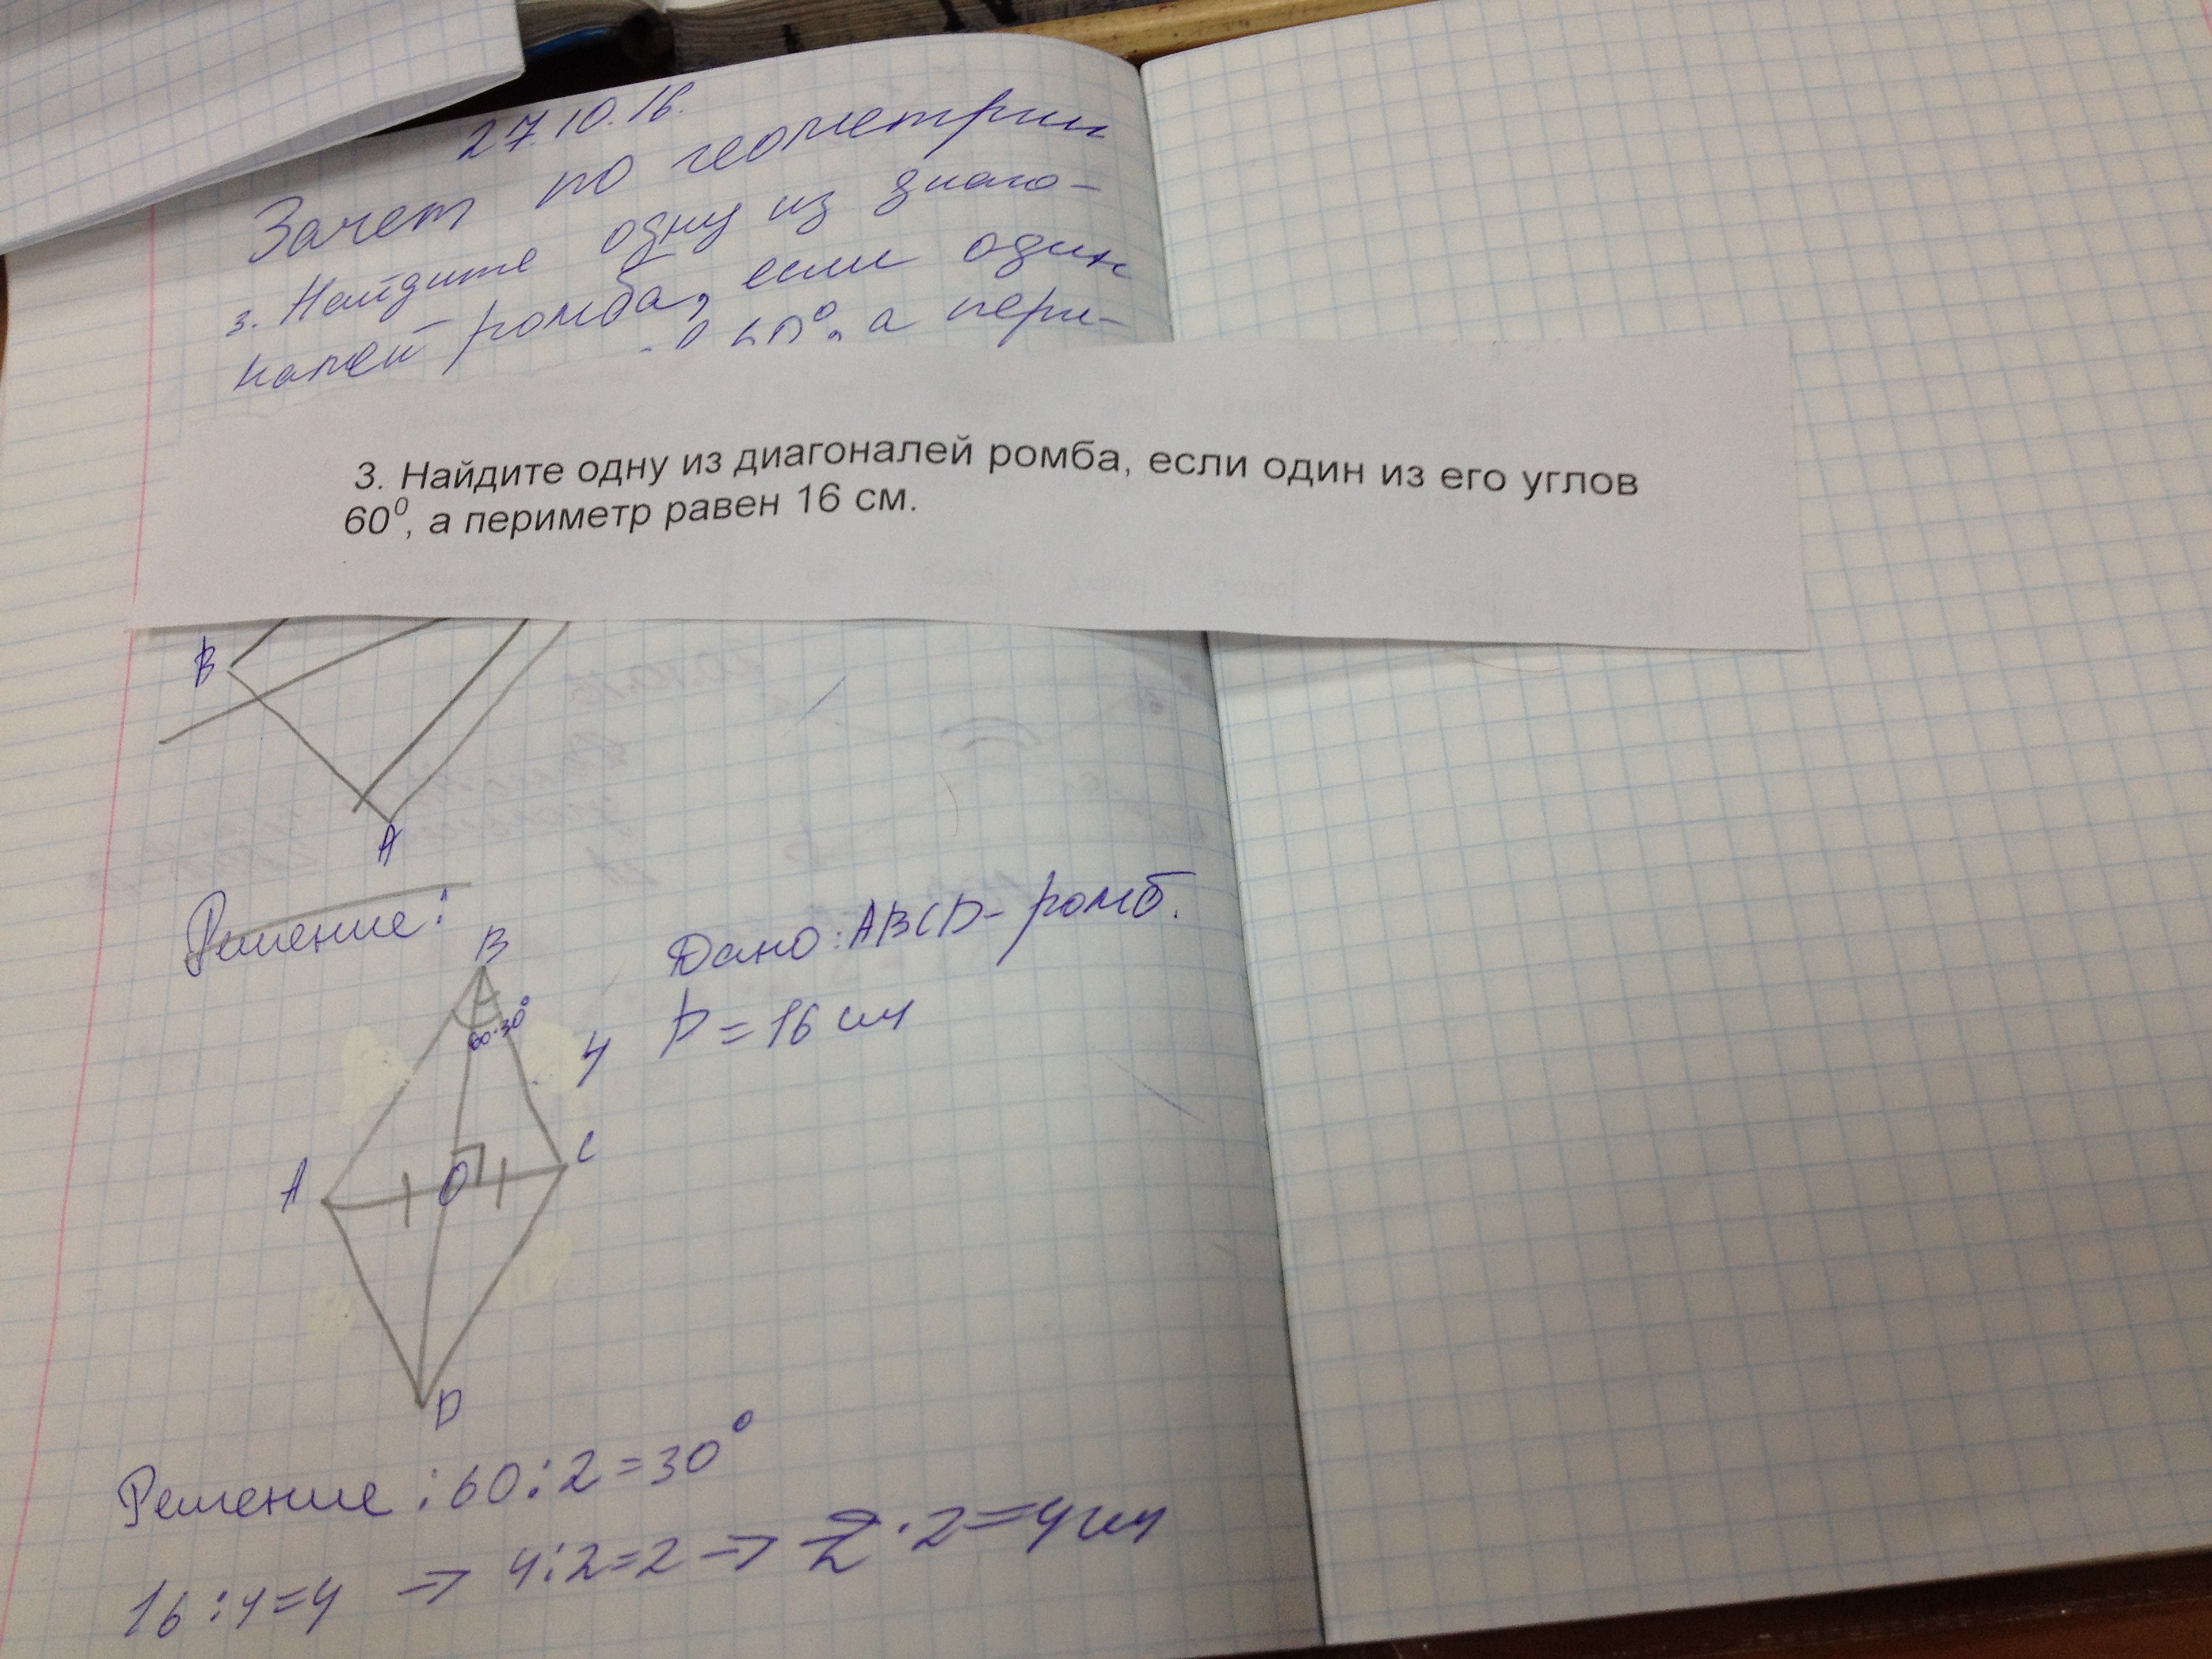 27.10.16.
Зачет по геометрии
3. Найдите одну из диаго-
налей ромба, если один
60°, а пери-
3. Найдите одну из диагоналей ромба, если один из его углов
60⁰, а периметр равен 16 см.
B
A
Решение:
B
60:30°
4
A
O
C
D
Дано: ABCD - ромб.
P = 16 см
Решение: 60:2=30°
16:4=4 => 4:2=2 => 2·2=4см